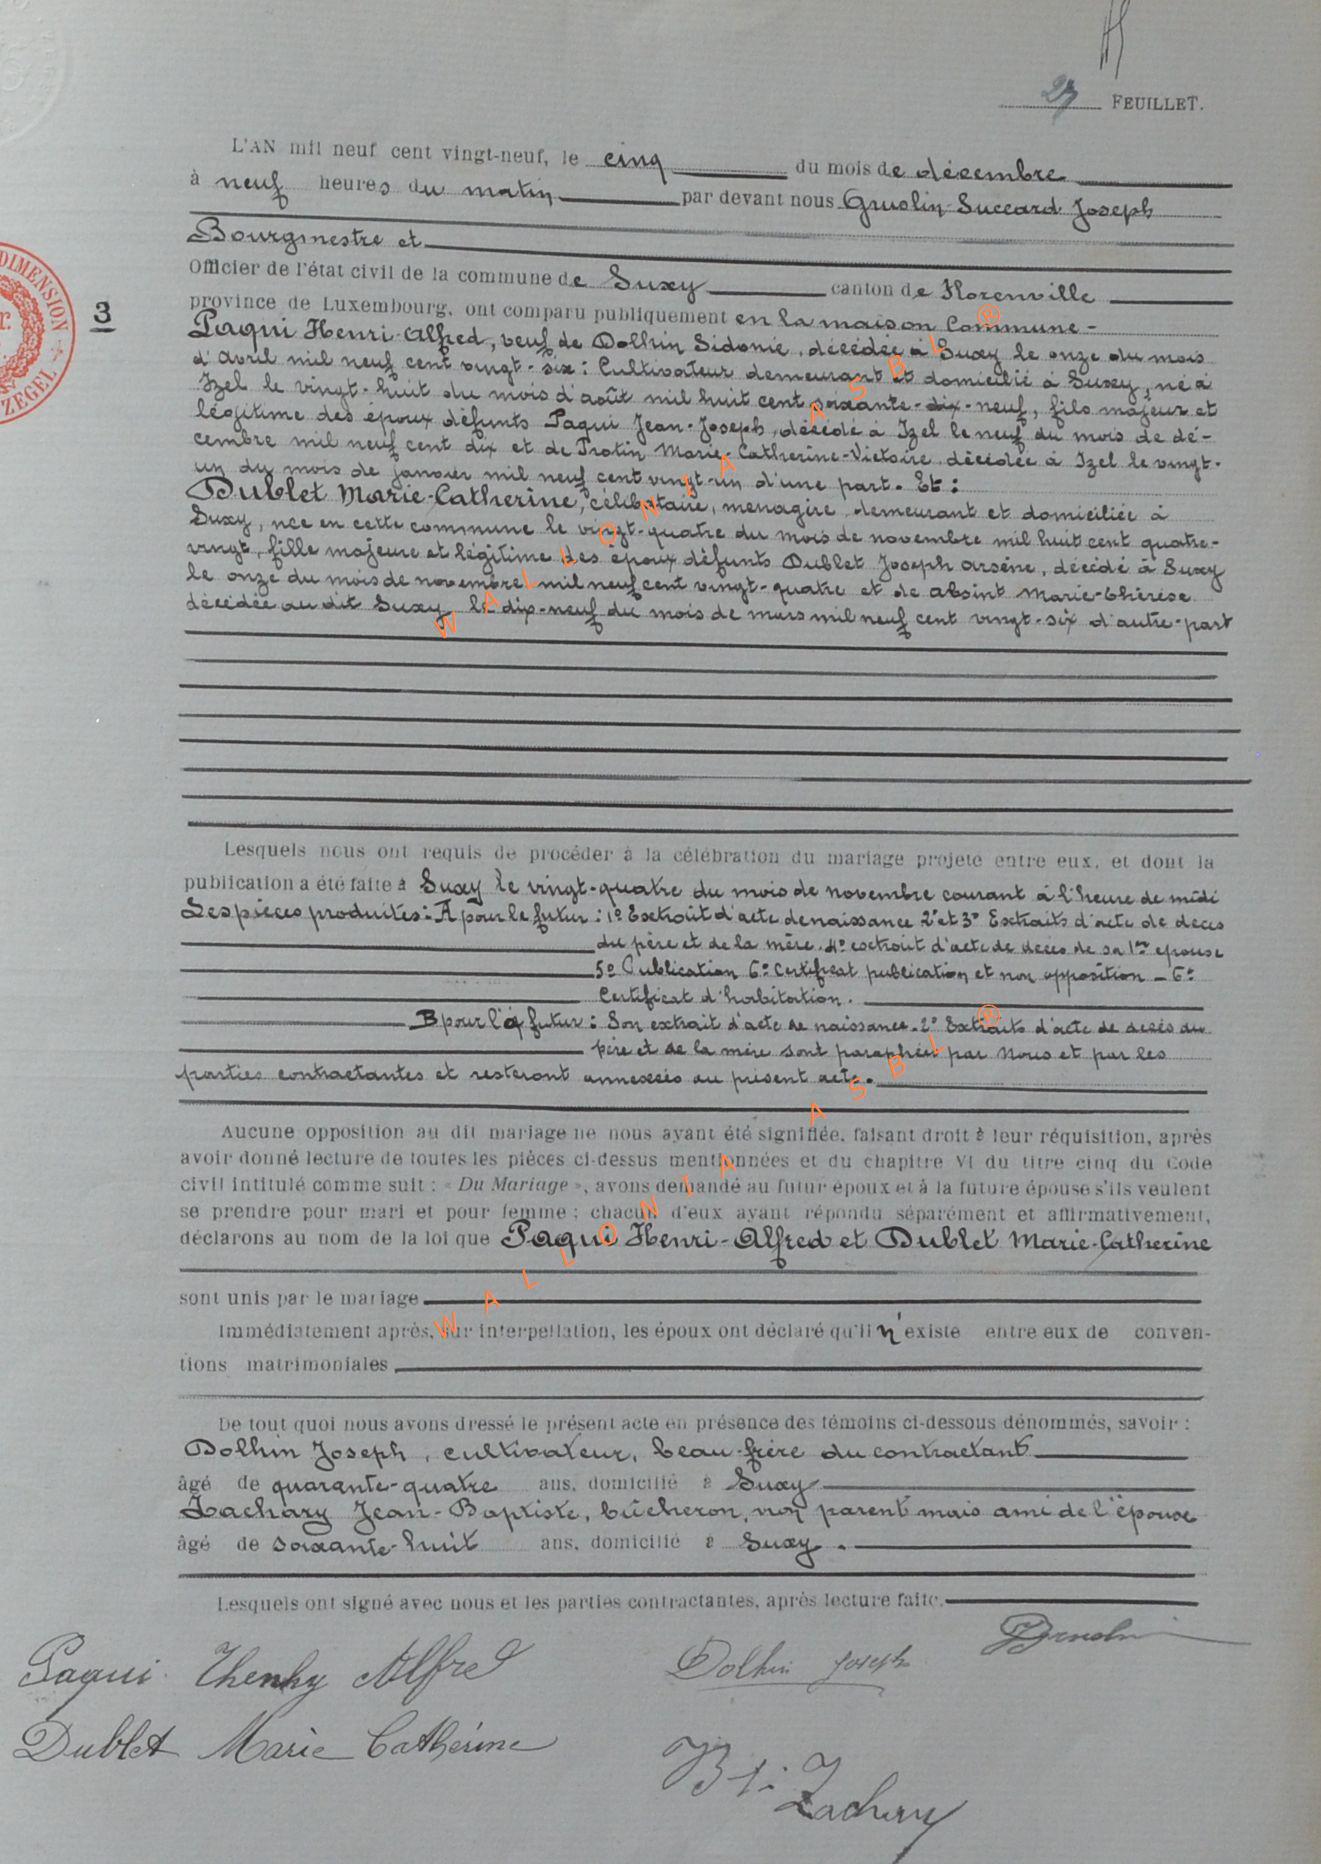 27 FEUILLET.
L'AN mil neuf cent vingt-neuf, le cinq du mois de décembre
à neuf heures du matin par devant nous Gruslin-Succard Joseph
Bourgmestre et
Officier de l'état civil de la commune de Suxy canton de Florenville
3
province de Luxembourg, ont comparu publiquement en la maison Commune -
Paqui Henri-Alfred, veuf de Dolhin Sidonie, décédée à Suxy le onze du mois
d'avril mil neuf cent vingt-six : Cultivateur demeurant et domicilié à Suxy, né à
Izel le vingt-huit du mois d'août mil huit cent soixante-dix-neuf, fils majeur et
légitime des époux défunts Paqui Jean-Joseph, décédé à Izel le neuf du mois de dé-
cembre mil neuf cent dix et de Protin Marie-Catherine-Victoire décédée à Izel le vingt-
un du mois de janvier mil neuf cent vingt-un d'une part. Et :
Dublet Marie-Catherine, célibataire, ménagère demeurant et domiciliée à
Suxy, née en cette commune le vingt-quatre du mois de novembre mil huit cent quatre-
vingt, fille majeure et légitime des époux défunts Dublet Joseph Arsène, décédé à Suxy
le onze du mois de novembre mil neuf cent vingt-quatre et de Absint Marie-Thérèse
décédée au dit Suxy le dix-neuf du mois de mars mil neuf cent vingt-six d'autre-part
Lesquels nous ont requis de procéder à la célébration du mariage projeté entre eux, et dont la
publication a été faite à Suxy le vingt-quatre du mois de novembre courant à l'heure de midi
Les pièces produites : A pour le futur : 1° Extrait d'acte de naissance 2° et 3° Extraits d'acte de décès
du père et de la mère. 4° extrait d'acte de décès de sa 1re epouse
5° Publication 6° Certificat publication et non opposition - 6°
Certificat d'habitation.
B pour la futur : Son extrait d'acte de naissance. 2° Extraits d'acte de décès du
père et de la mère sont paraphés par Nous et par les
parties contractantes et resteront annexées au présent acte.
Aucune opposition au dit mariage ne nous ayant été signifiée, faisant droit à leur réquisition, après
avoir donné lecture de toutes les pièces ci-dessus mentionnées et du chapitre VI du titre cinq du Code
civil intitulé comme suit : « Du Mariage », avons demandé au futur époux et à la future épouse s'ils veulent
se prendre pour mari et pour femme ; chacun d'eux ayant répondu séparément et affirmativement,
déclarons au nom de la loi que Paqui Henri-Alfred et Dublet Marie-Catherine
sont unis par le mariage
Immédiatement après, sur interpellation, les époux ont déclaré qu'il n'existe entre eux de conven-
tions matrimoniales
De tout quoi nous avons dressé le présent acte en présence des témoins ci-dessous dénommés, savoir :
Dolhin Joseph, cultivateur, beau-frère du contractant
âgé de quarante-quatre ans, domicilié à Suxy
Zachary Jean-Baptiste, bûcheron, non parent mais ami de l'épouse
âgé de soixante-huit ans, domicilié à Suxy.
Lesquels ont signé avec nous et les parties contractantes, après lecture faite.
Paqui Thenhy Alfred Dolhin Joseph
Dublet Marie Cathérine
Bti Zachary
DIMENSION
ZEGEL
WALLONIA ASBL ®
WALLONIA ASBL ®